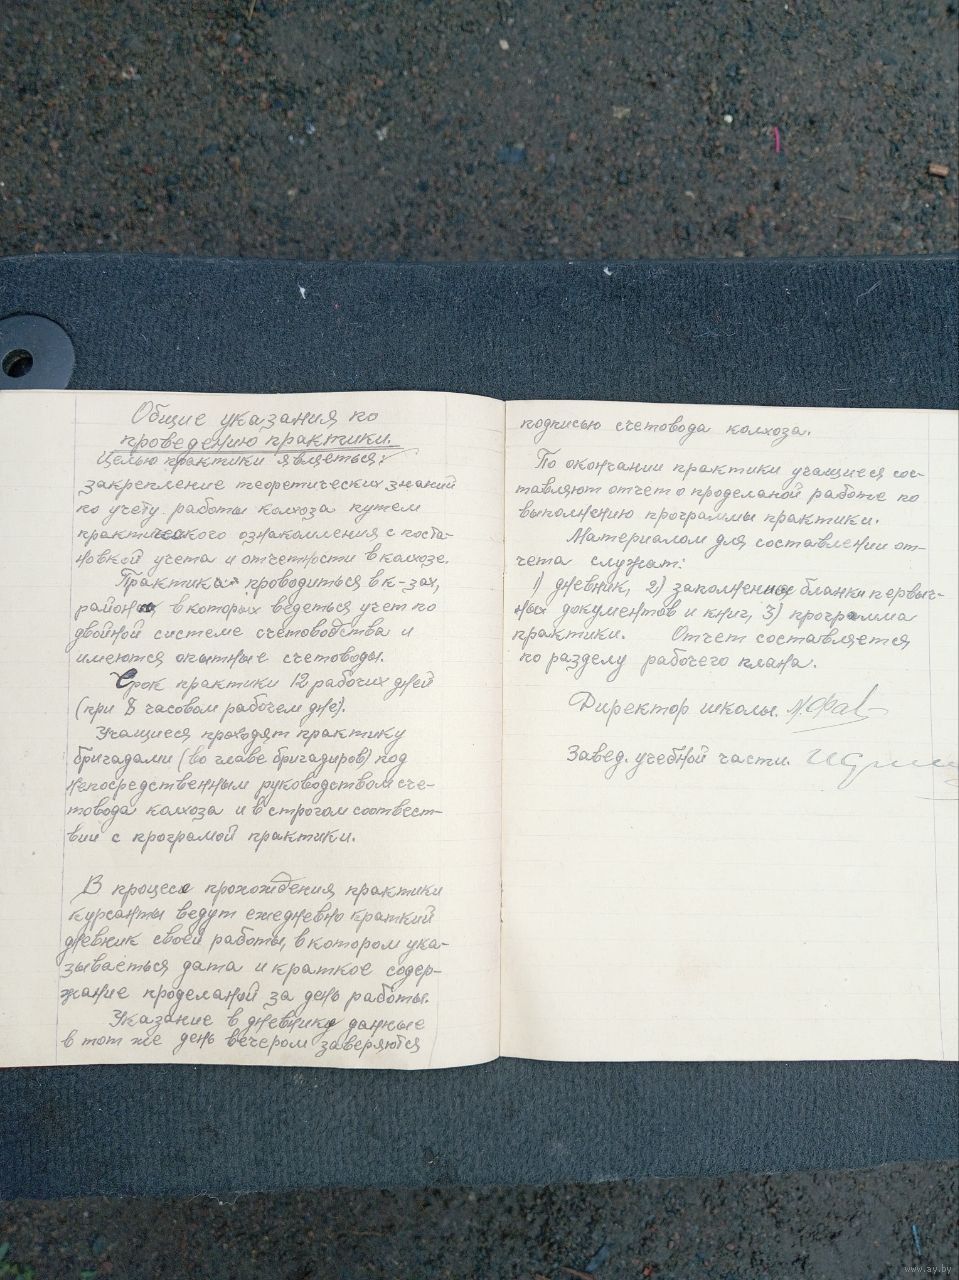 Общие указания по
проведению практики.
Целью практики являеться:
закрепление теоретических знаний
по учету работы колхоза путем
практического ознакомления с поста-
новкой учета и отчетности в колхозе.
Практика проводиться в к-зах,
района в которых ведеться учет по
двойной системе счетоводства и
имеются опытные счетоводы.
Срок практики 12 рабочих дней
(при 8 часовом рабочем дне).
Учащиеся проходят практику
бригадами (во главе бригадиров) под
непосредственным руководством сче-
товода колхоза и в строгом соотвест-
вии с програмой практики.
В процесе прохождения практики
курсанты ведут ежедневно краткий
дневник своей работы, в котором ука-
зываеться дата и краткое содер-
жание проделаной за день работы.
Указание в дневнику данные
в тот же день вечером заверяются
подписью счетовода колхоза.
По окончании практики учащиеся сос-
тавляют отчет о проделаной работе по
выполнению программы практики.
Материалом для составлении от-
чета служат:
1) дневник, 2) заполненые бланки первич-
ных документов и книг, 3) программа
практики. Отчет составляется
по разделу рабочего плана.
Директор школы.
Завед. учебной части.
www.ay.by